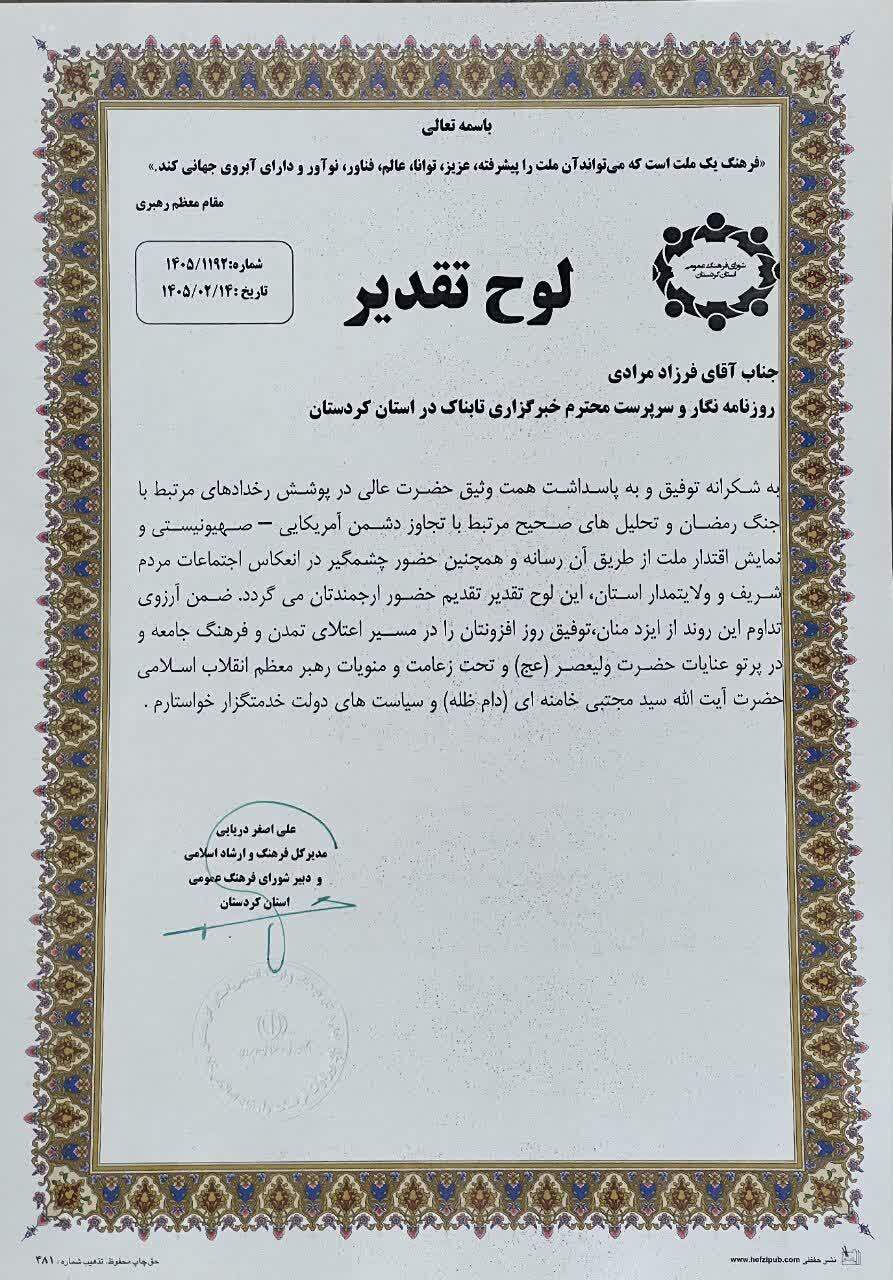 باسمه تعالی
«فرهنگ یک ملت است که می‌تواندآن ملت را پیشرفته، عزیز، توانا، عالم، فناور، نوآور و دارای آبروی جهانی کند.»
مقام معظم رهبری
شورای فرهنگ عمومی
استان کردستان
لوح تقدیر
شماره:۱۴۰۵/۱۱۹۲
تاریخ :۱۴۰۵/۰۲/۱۴
جناب آقای فرزاد مرادی
روزنامه نگار و سرپرست محترم خبرگزاری تابناک در استان کردستان
به شکرانه توفیق و به پاسداشت همت وثیق حضرت عالی در پوشش رخدادهای مرتبط با
جنگ رمضان و تحلیل های صحیح مرتبط با تجاوز دشمن آمریکایی – صهیونیستی و
نمایش اقتدار ملت از طریق آن رسانه و همچنین حضور چشمگیر در انعکاس اجتماعات مردم
شریف و ولایتمدار استان، این لوح تقدیر تقدیم حضور ارجمندتان می گردد. ضمن آرزوی
تداوم این روند از ایزد منان،توفیق روز افزونتان را در مسیر اعتلای تمدن و فرهنگ جامعه و
در پرتو عنایات حضرت ولیعصر (عج) و تحت زعامت و منویات رهبر معظم انقلاب اسلامی
حضرت آیت الله سید مجتبی خامنه ای (دام ظله) و سیاست های دولت خدمتگزار خواستارم .
علی اصغر دریایی
مدیرکل فرهنگ و ارشاد اسلامی
و دبیر شورای فرهنگ عمومی
استان کردستان
نشر حفظی www.hefzipub.com
حق چاپ محفوظ. تذهیب شماره: ۴۸۱